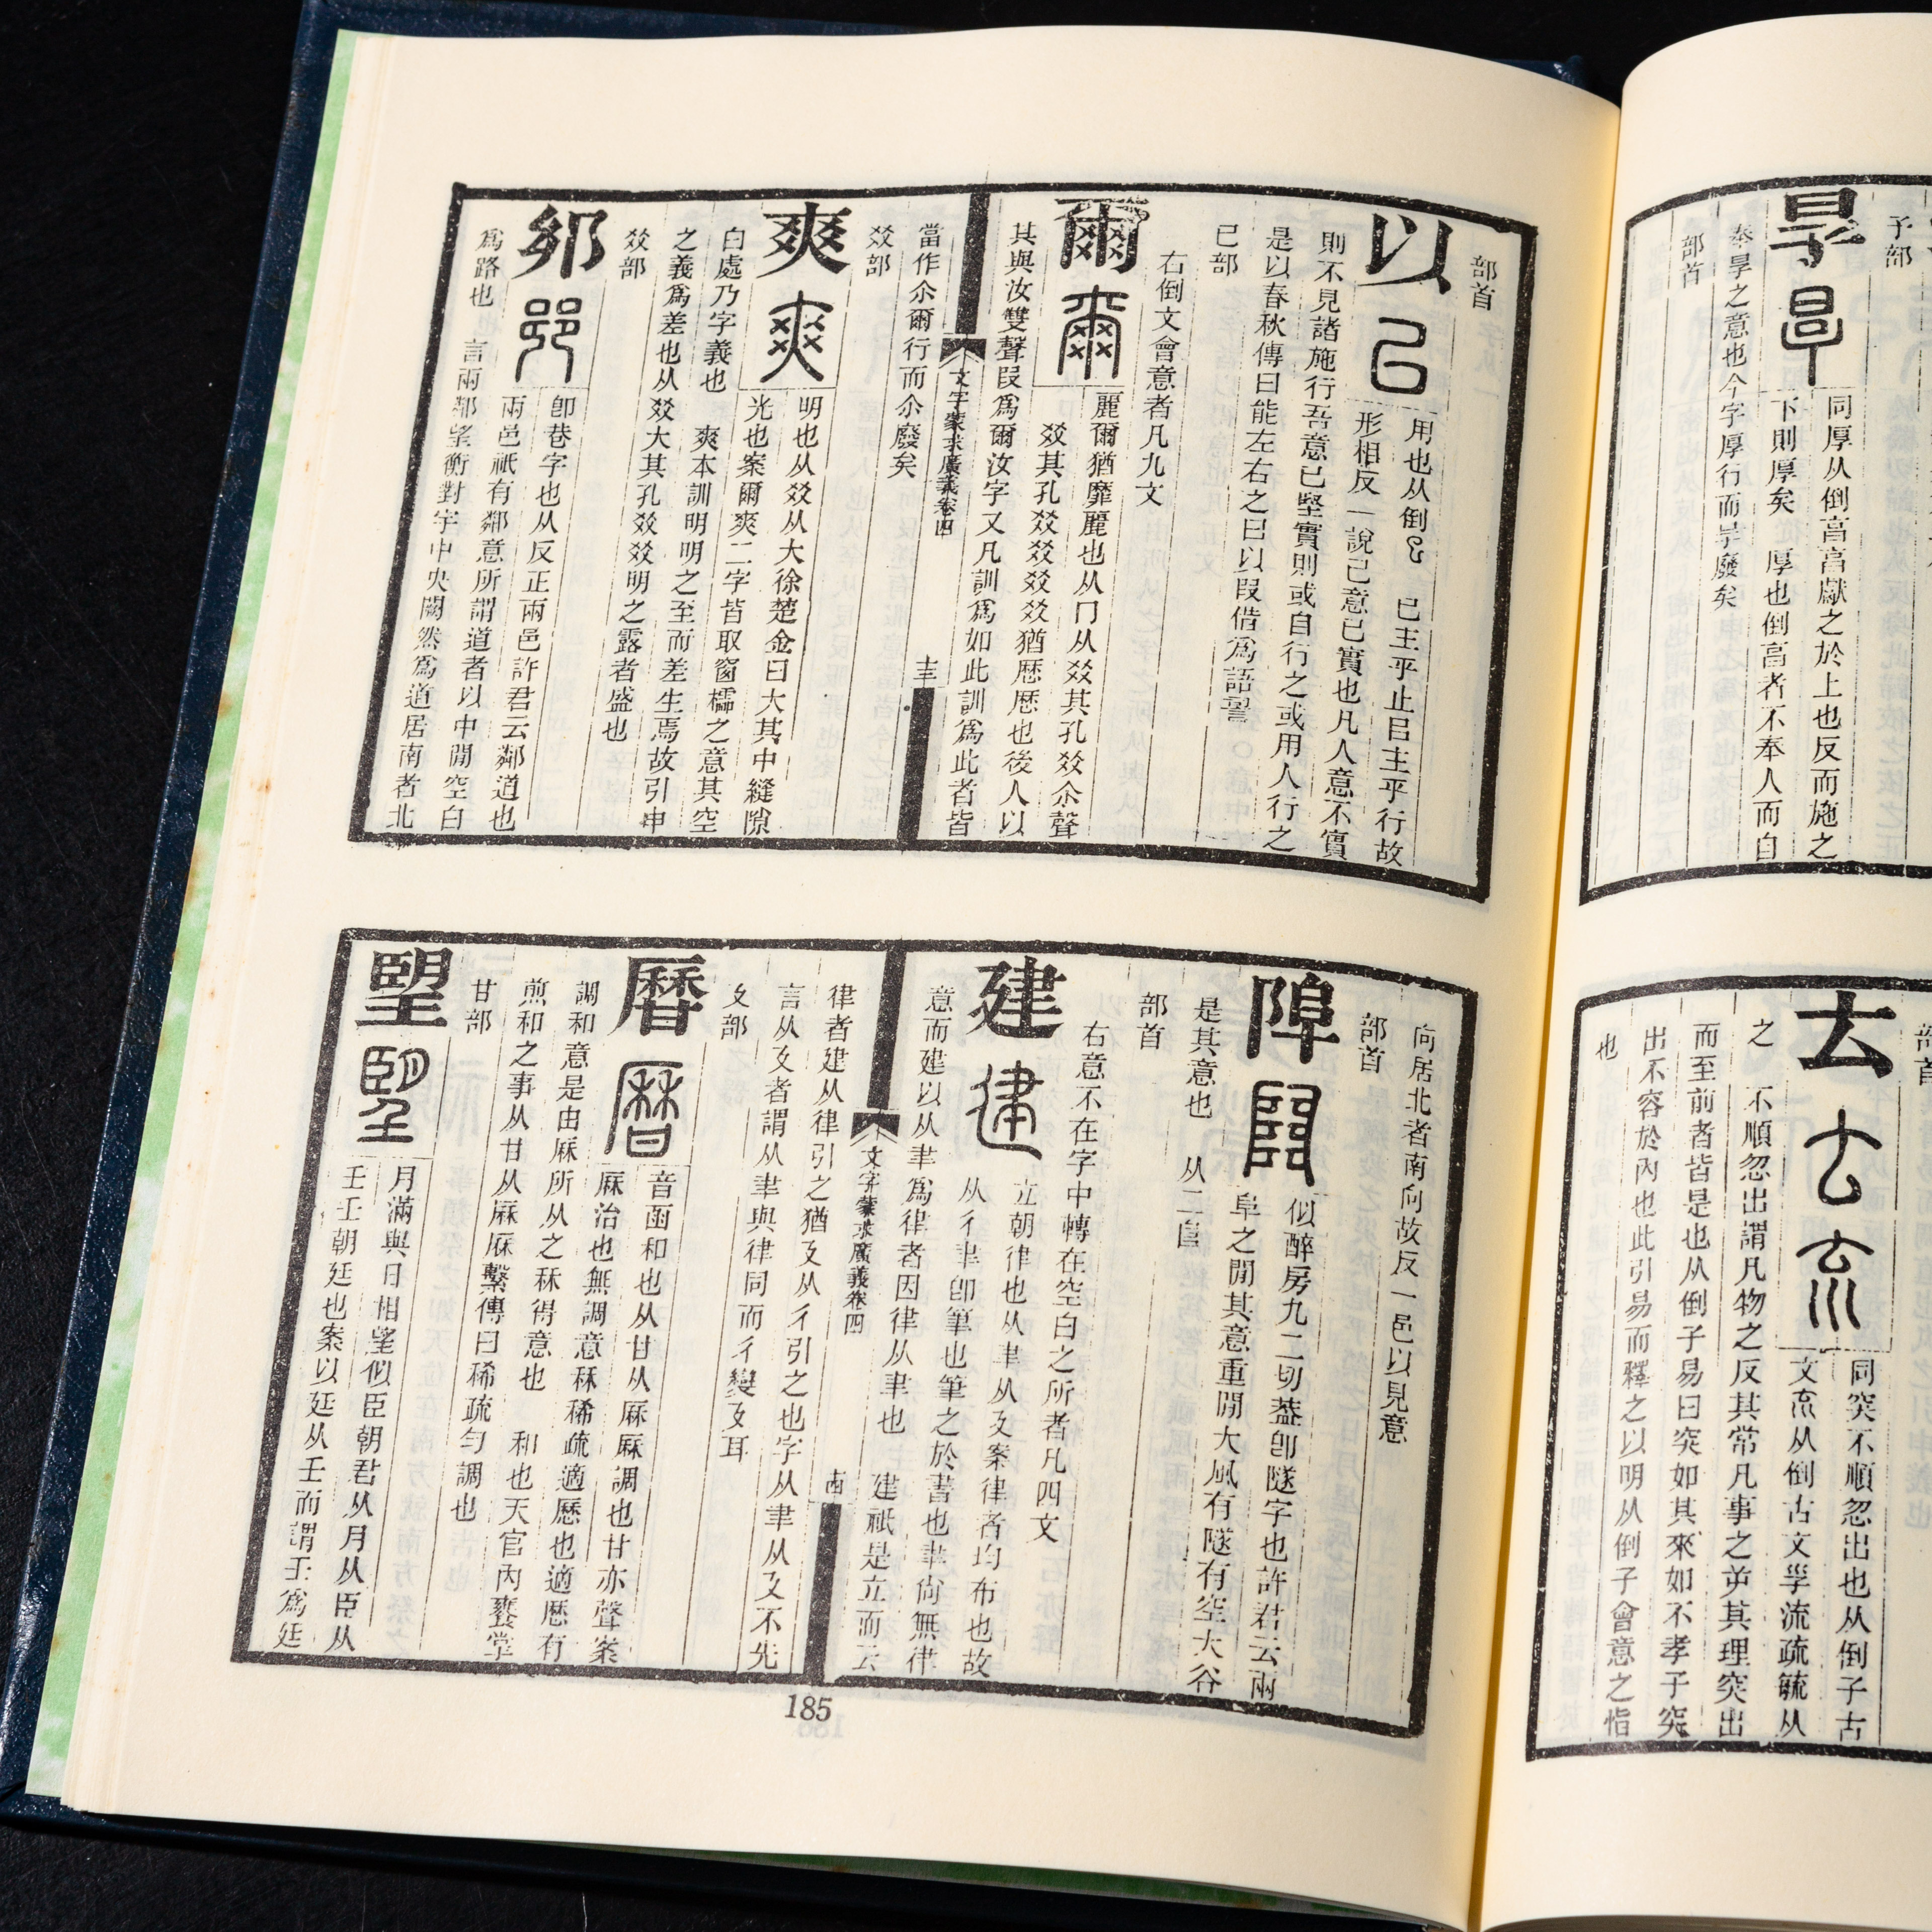 予部
㫗
同厚从倒亯亯獻之於上也反而施之
下則厚矣 厚也倒亯者不奉人而自
奉㫗之意也今字厚行而㫗廢矣
部首
部首
𠫓
同突不順忽出也从倒子古
文㐬从倒古文㜽流疏毓从
之 不順忽出謂凡物之反其常凡事之屰其理突出
而至前者皆是也从倒子易曰突如其來如不孝子突
出不容於內也此引易而釋之以明从倒子會意之恉
也
部首
以
用也从倒巳 巳主乎止㠯主乎行故
形相反一說已意已實也凡人意不實
則不見諸施行吾意已堅實則或自行之或用人行之
是以春秋傳曰能左右之曰以叚借爲語䛐
巳部
右倒文會意者凡九文
爾
麗爾猶靡麗也从冂从㸚其孔㸚尒聲
㸚其孔㸚㸚㸚㸚猶歷歷也後人以
其與汝雙聲叚爲爾汝字又凡訓爲如此訓爲此者皆
文字蒙求廣義卷四 十三
當作尒爾行而尒廢矣
㸚部
爽
明也从㸚从大徐楚金曰大其中縫隙
光也案爾爽二字皆取窗櫺之意其空
白處乃字義也 爽本訓明明之至而差生焉故引申
之義爲差也从㸚大其孔㸚㸚明之露者盛也
㸚部
𨙨
卽巷字也从反正兩邑許君云鄰道也
兩邑祇有鄰意所謂道者以中閒空白
爲路也 言兩鄰望衡對宇中央闕然爲道居南者北
向居北者南向故反一邑以見意
部首
似醉房九二切葢卽隧字也許君云兩
阜之閒其意重閒大風有隧有空大谷
是其意也 从二𨸏
部首
右意不在字中轉在空白之所者凡四文
建
立朝律也从聿从廴案律者均布也故
从彳聿卽筆也筆之於書也聿尙無律
意而建以从聿爲律者因律从聿也 建祇是立而云
文字蒙求廣義卷四 十四
律者建从律引之猶廴从彳引之也字从聿从廴不先
言从廴者謂从聿與律同而彳變廴耳
廴部
𤯍
音函和也从甘从厤厤調也甘亦聲案
厤治也無調意秝稀疏適歷也適歷有
調和意是由厤所从之秝得意也 和也天官內饔掌
煎和之事从甘从厤厤繫傳曰稀疏勻調也
甘部
朢
月滿與日相望似臣朝君从月从臣从
壬壬朝廷也案以廷从壬而謂壬爲廷
185